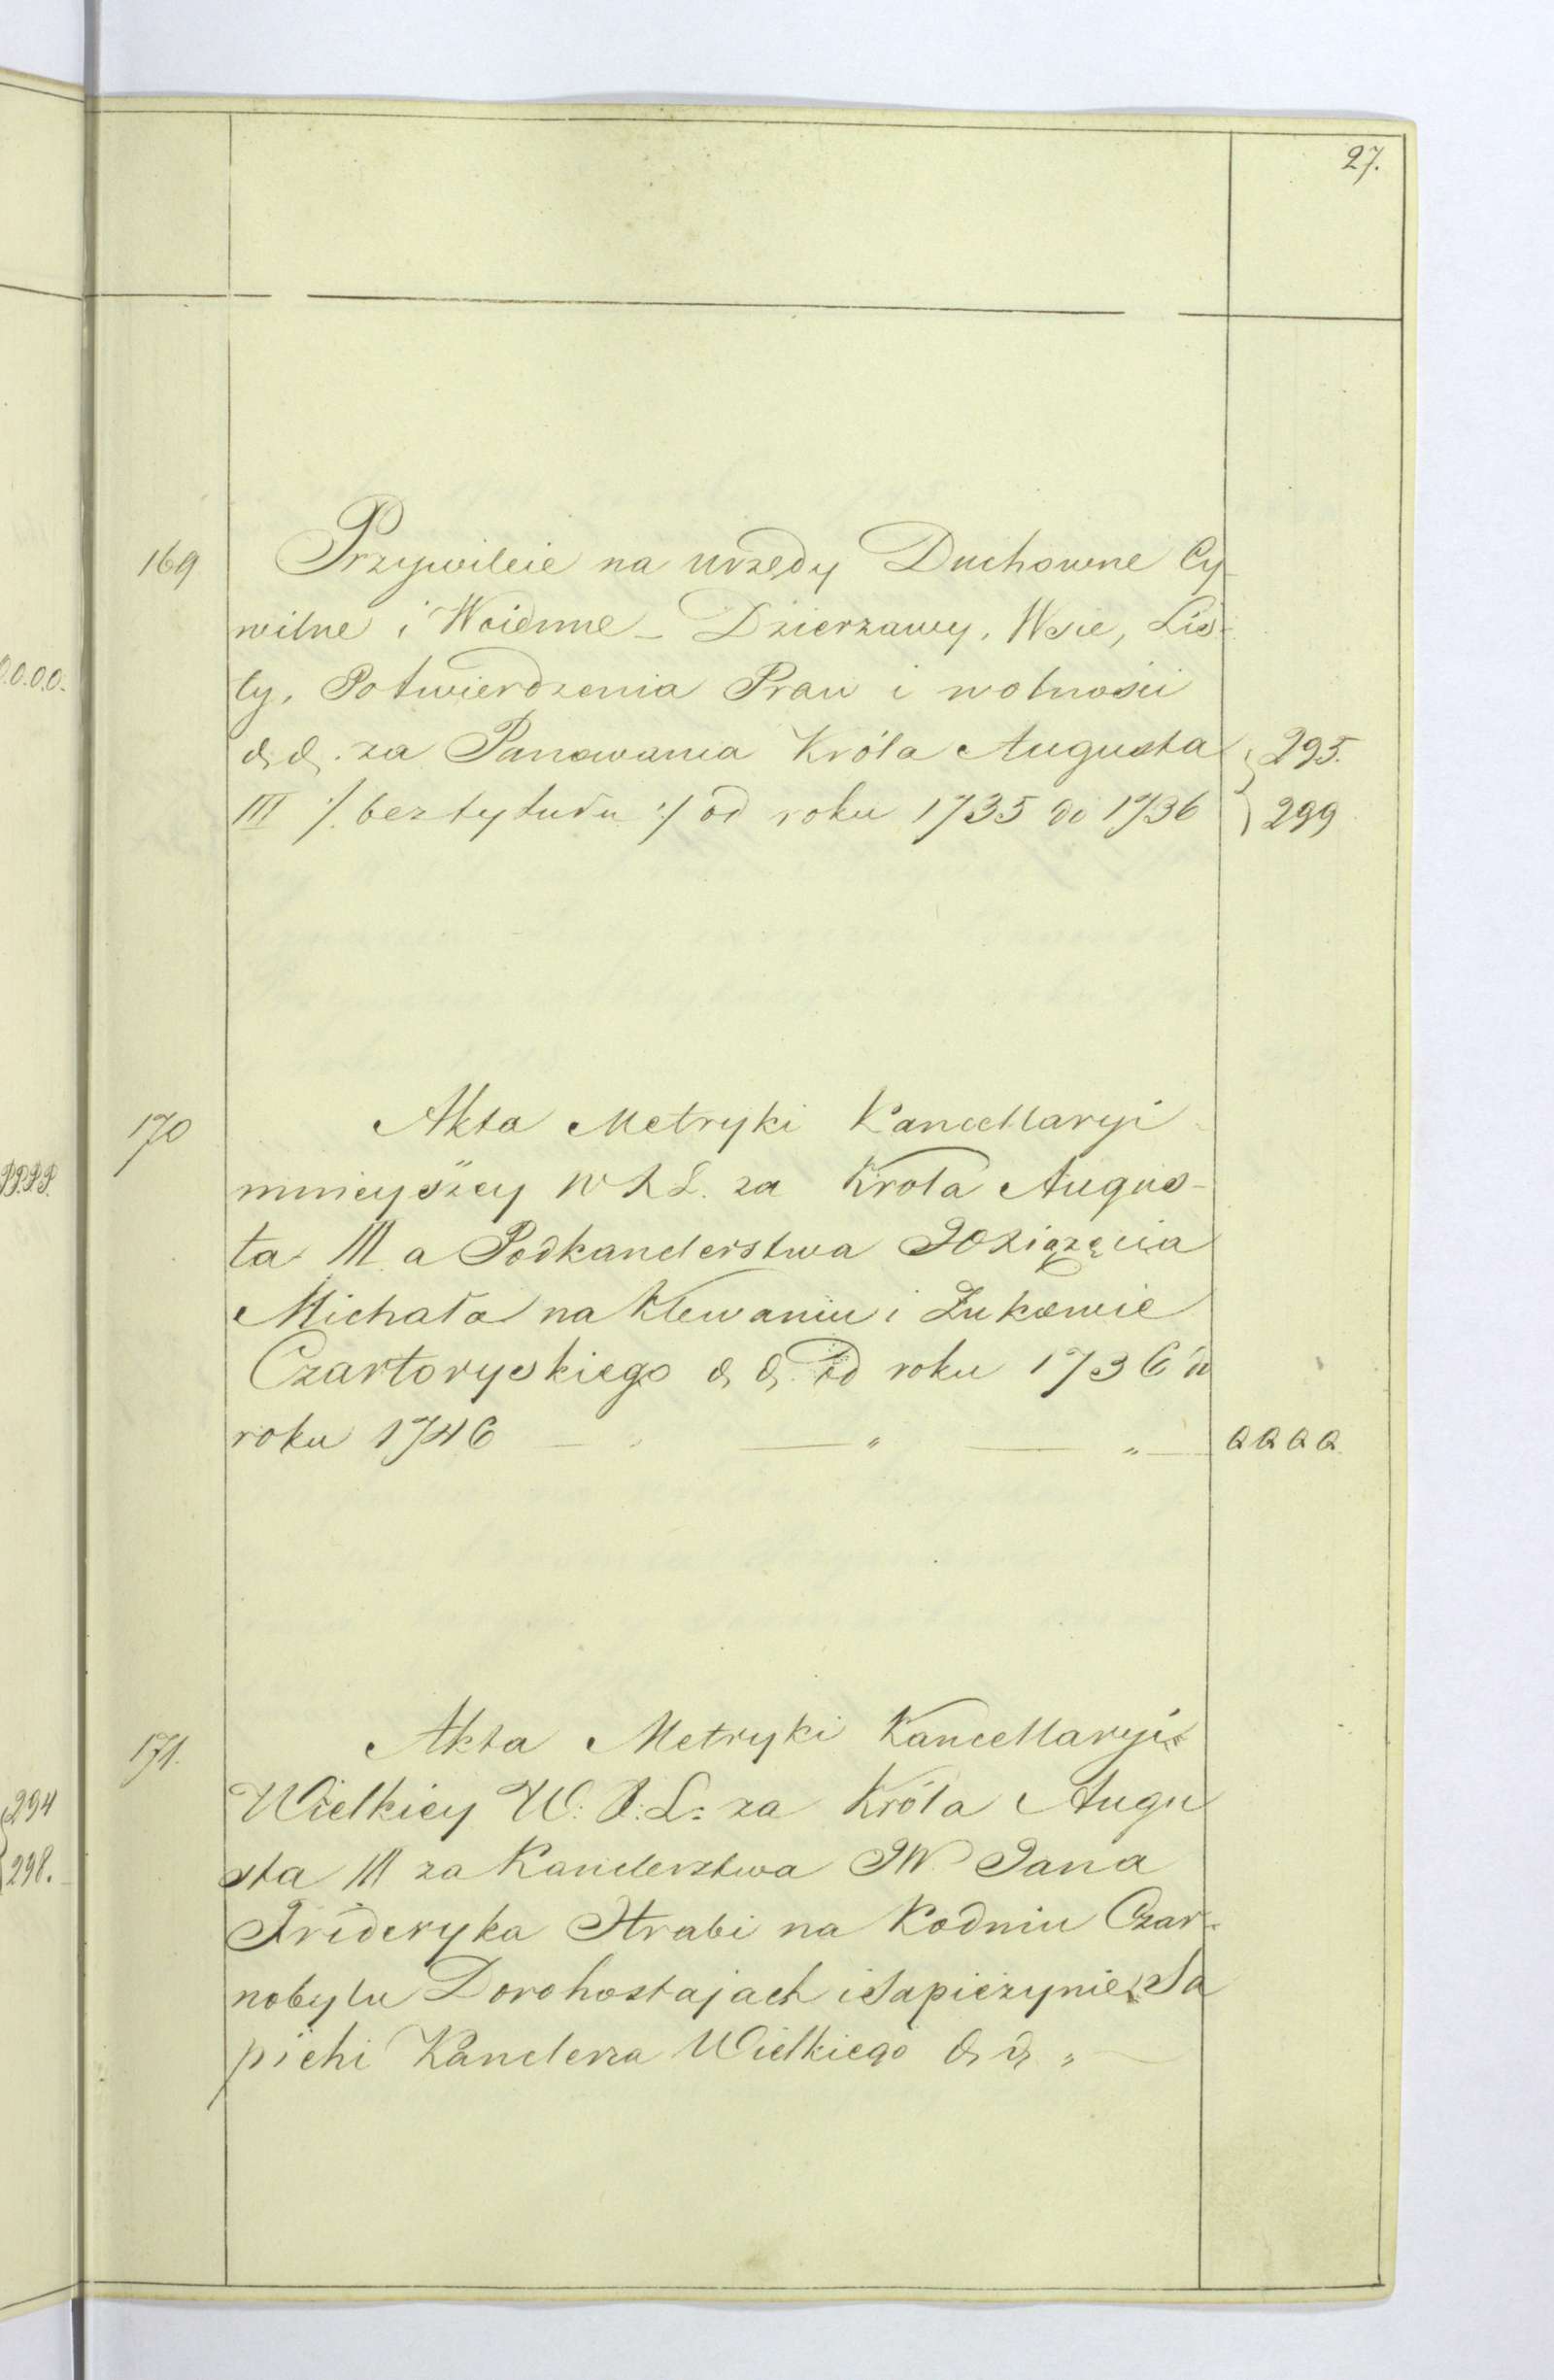 27.
169 Przywileie na urzędy Duchowne Cy-
wilne i Woienne - Dzierzawy, Wsie, Lis-
ty, Potwierdzenia Praw i wolności
&, &. za Panowania Króla Augusta } 295.
III ·/. bez tytułu ·/ od roku 1735 do 1736 } 299
O.O.O.O.
170 Akta Metryki Kancellaryi
mnieyszey W X L. za Krola Augus-
ta III a Podkanclerstwa JO Xiążęcia
Michała na Klewaniu i Zukowie
Czartoryskiego &, &. od roku 1736 do
roku 1746 — „ — „ — Q Q Q Q
P.P.P.P.
171. Akta Metryki Kancellaryi
Wielkiey W: X: L: za Króla Augu
sta III za Kanclerztwa JW Jana
Frideryka Hrabi na Kodniu Czar-
nobylu Dorohostajach i Sapieżynie Sa
piehi Kanclerza Wielkiego &, &, „
294
298.